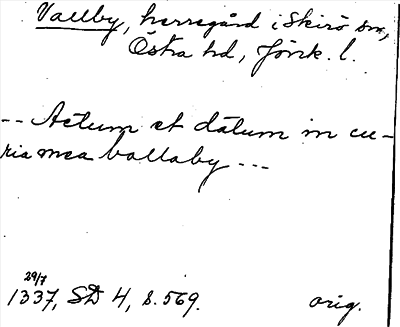 Vallby, herregård i Skirö sn,
Östra hd, Jönk. l.
-- Actum et datum in cu-
ria mea vallaby ---
29/7
1337, SD 4, s. 569. orig.